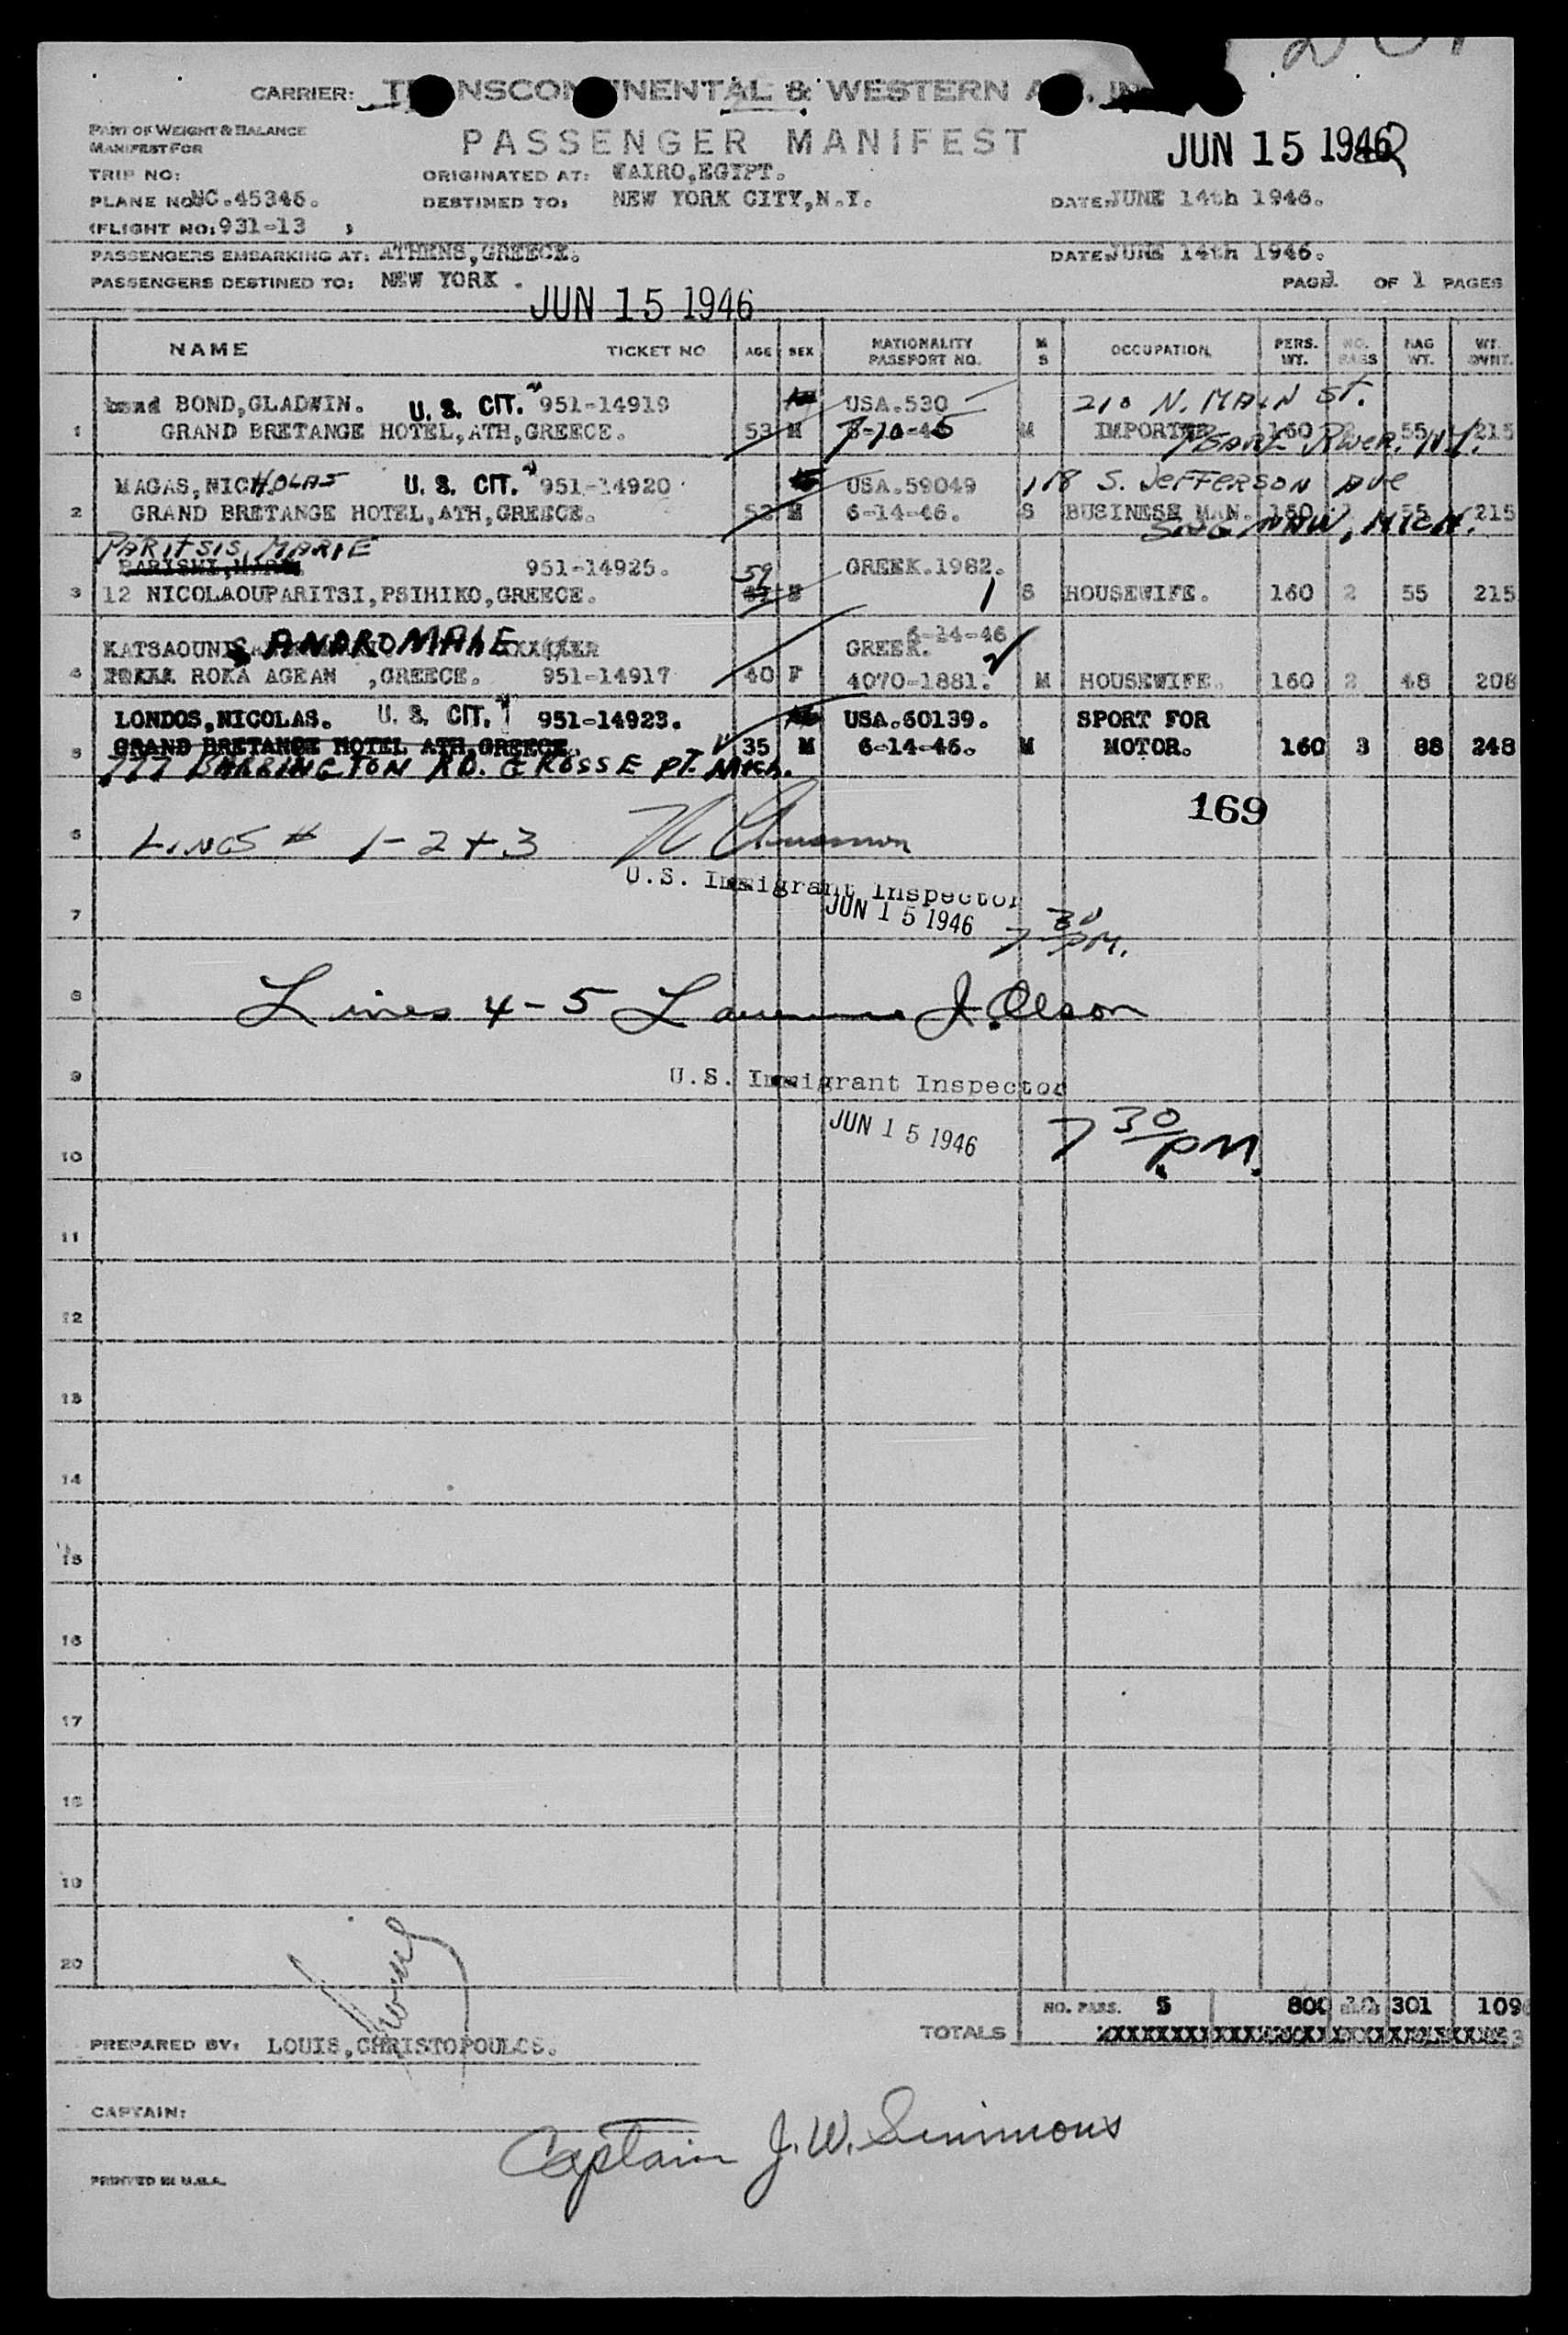 CARRIER: T NSCON NENTAL & WESTERN A . IN
PART OF WEIGHT & BALANCE
MANIFEST FOR
PASSENGER MANIFEST
JUN 15 1946
TRIP NO:
ORIGINATED AT: CAIRO,EGYPT.
PLANE NO: NC.45346.
DESTINED TO: NEW YORK CITY,N.Y.
DATE: JUNE 14th 1946.
(FLIGHT NO: 931-13 )
PASSENGERS EMBARKING AT: ATHENS,GREECE.
DATE: JUNE 14th 1946.
PASSENGERS DESTINED TO: NEW YORK .
PAGE 1 OF 1 PAGES
JUN 15 1946
NAME TICKET NO AGE SEX NATIONALITY PASSPORT NO. M S OCCUPATION PERS. WT. NO. BAGS BAG WT. WT. OVRT.
bond BOND,GLADWIN. U. S. CIT. 951-14919 USA.530 210 N. MAIN ST.
1 GRAND BRETANGE HOTEL,ATH,GREECE. 53 M 7-10-45 M IMPORTER 160 2 55 215
PEARL RIVER. N.Y.
MAGAS,NICHOLAS U. S. CIT. 951-14920 USA.59049 118 S. JEFFERSON AVE
2 GRAND BRETANGE HOTEL,ATH,GREECE. 52 M 6-14-46. S BUSINESS MAN. 160 55 215
SAGINAW, MICH.
PARITSIS, MARIE
951-14925. 59 GREEK.1982.
3 12 NICOLAOUPARITSI,PSIHIKO,GREECE. F 1 S HOUSEWIFE. 160 2 55 215
KATSAOUNIS, ANDROMALE GREEK. 6-14-46
4 ROKA AGEAN ,GREECE. 951-14917 40 F 4070-1881. 2 M HOUSEWIFE. 160 2 48 208
LONDOS,NICOLAS. U. S. CIT. 951-14923. USA.60139. SPORT FOR
5 GRAND BRETANGE HOTEL ATH,GREECE. 35 M 6-14-46. M MOTOR. 160 3 88 248
777 BARRINGTON RD. GROSSE PT. MICH.
169
6 LINES # 1-2+3
U.S. Immigrant Inspector
7 JUN 15 1946 7 30 PM.
8 Lines 4-5 Lawrence J. Olson
9 U.S. Immigrant Inspector
10 JUN 15 1946 7 30 PM.
11
12
13
14
15
16
17
18
19
20
NO. PASS. 5 800 301 109
TOTALS
PREPARED BY: LOUIS,CHRISTOPOULOS.
CAPTAIN: Captain J.W. Simmons
PRINTED IN U.S.A.